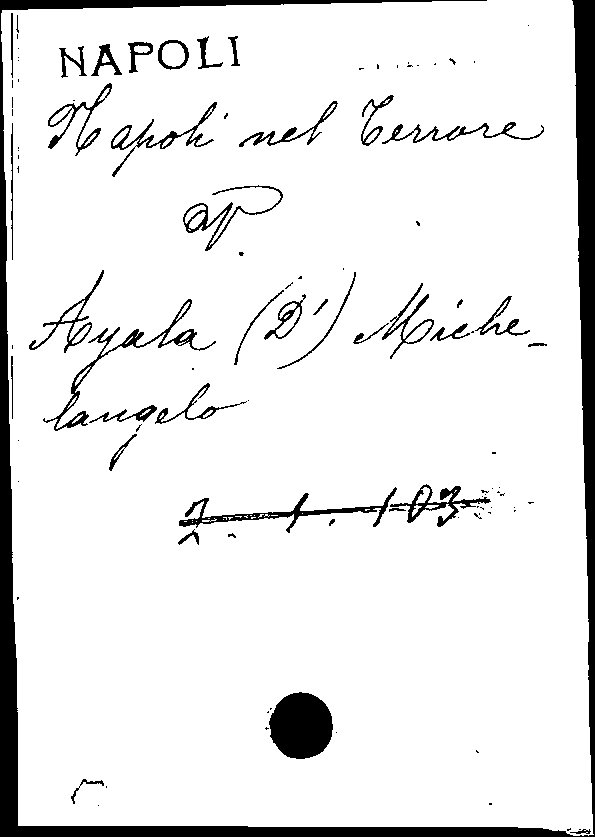 NAPOLI
Napoli nel Terrore
ap.
Ayala (D') Miche-
langelo
2. 1. 103